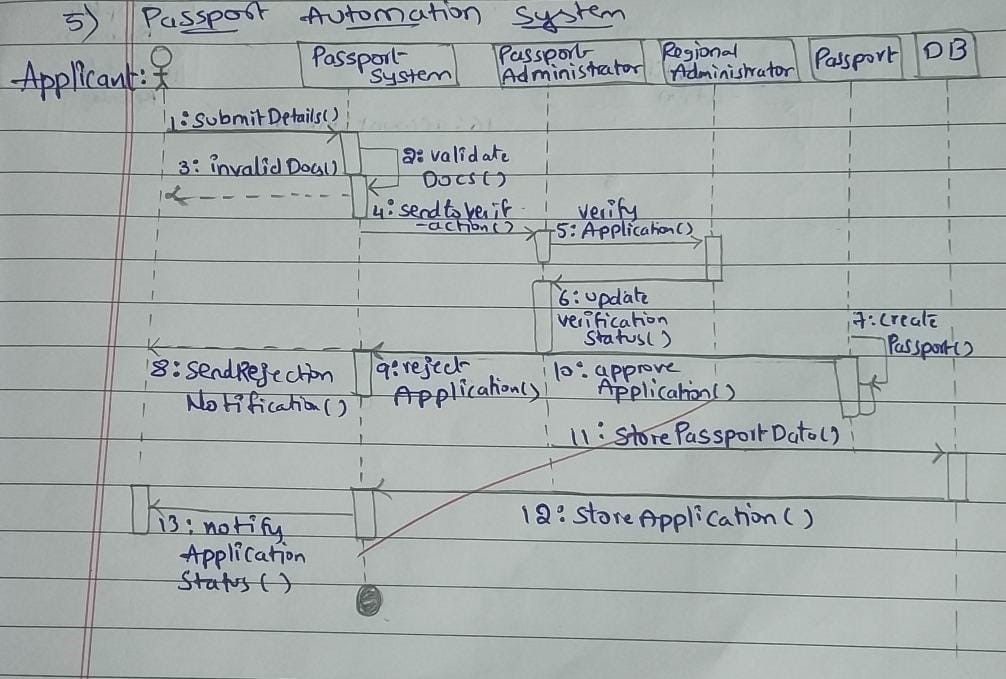 5) Passport Automation System
Applicant:
Passport
System
Passport
Administrator
Regional
Administrator
Passport
DB
1:submitDetails()
2: validate
Docs()
3: invalidDocs()
4: sendtoVerif
-action()
verify
5: Application()
6: update
verification
Status()
7: create
Passport()
8: SendRejection
Notification()
9: reject
Application()
10: approve
Application()
11: StorePassportData()
12: StoreApplication()
13: notify
Application
Status()